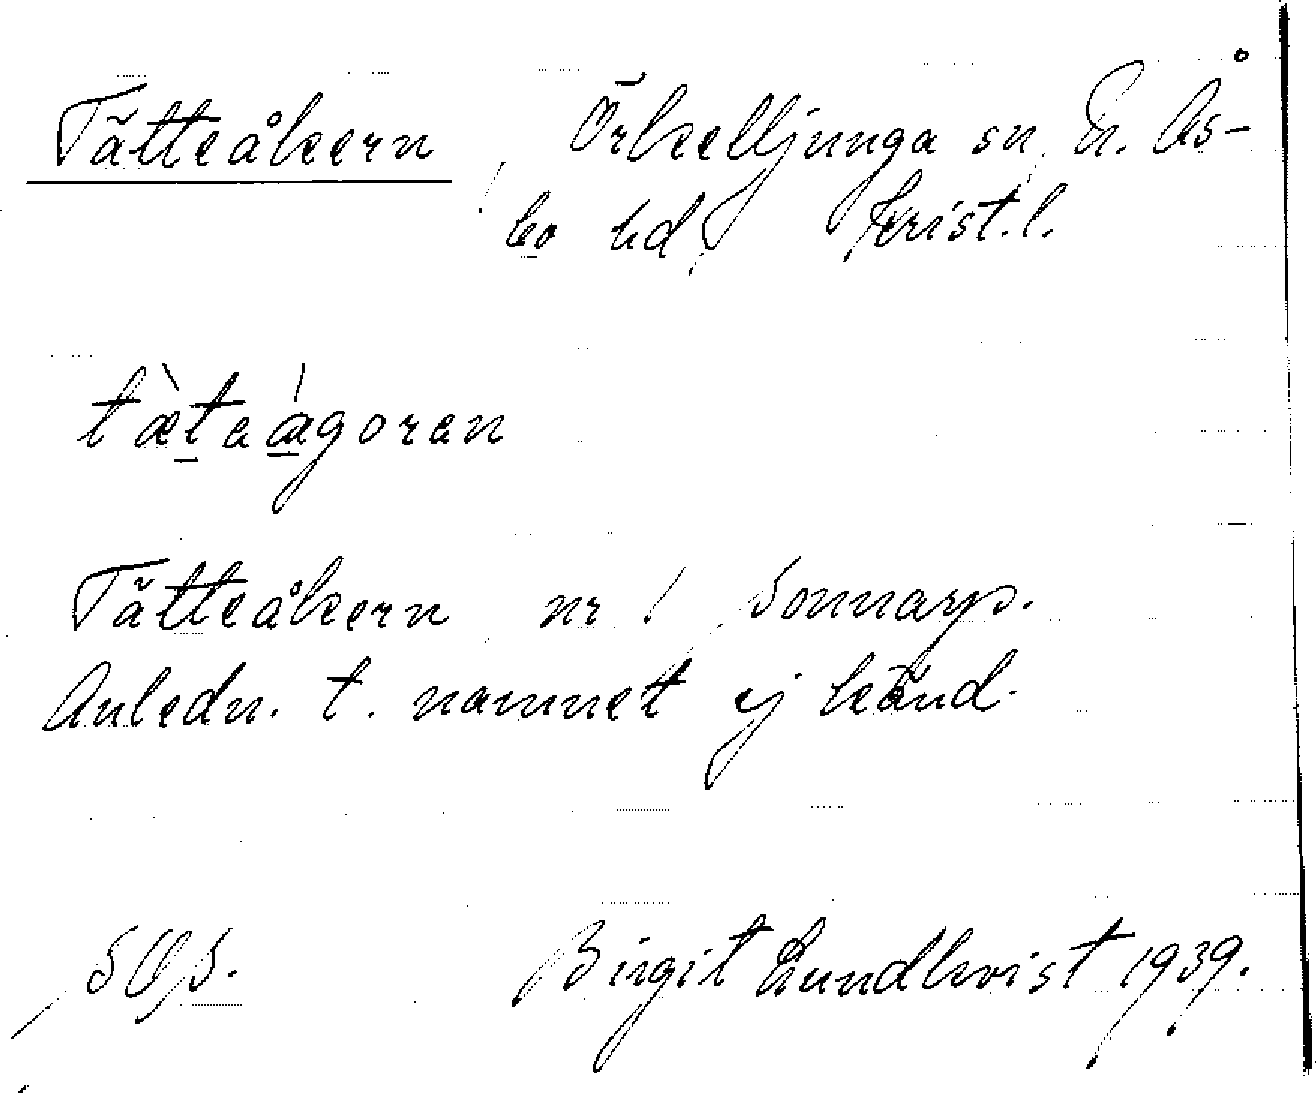 Tätteåkern, Örkelljunga sn, N. Ås-
bo hd, Krist. l.
tæ̀teágoren
Tätteåkern nr 1 Sonnarp.
Anledn. t. namnet ej känd.
Birgit Lundkvist 1939.